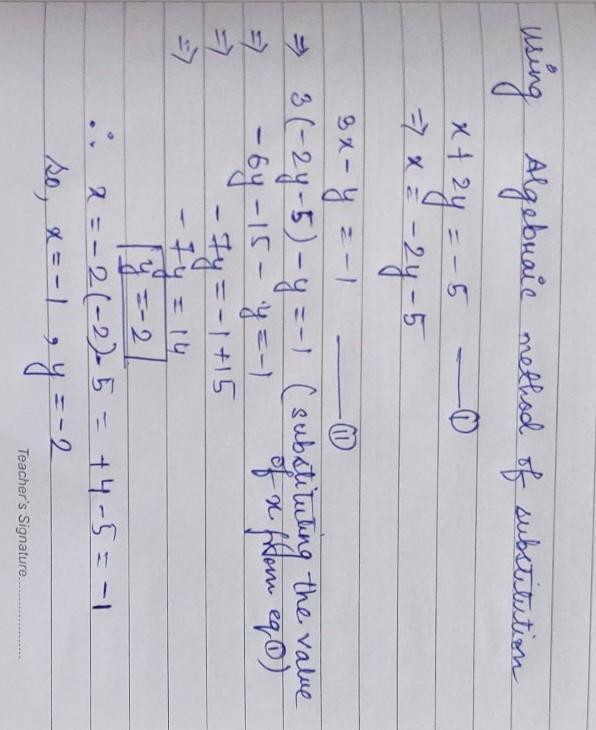 using Algebraic method of substitution
x + 2y = -5 —— ①
⇒ x = -2y - 5
3x - y = -1 —— ⑪
⇒ 3(-2y-5) - y = -1 (substituting the value
of x from eq ①)
⇒ -6y - 15 - y = -1
⇒ -7y = -1 + 15
⇒ -7y = 14
y = -2
∴ x = -2(-2) - 5 = +4 - 5 = -1
so, x = -1 , y = -2
Teacher's Signature....................